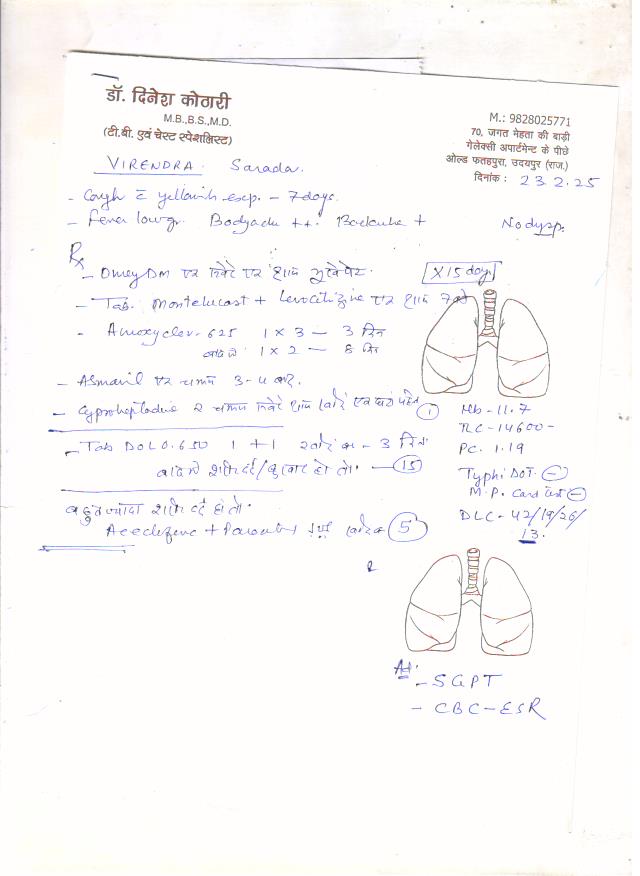 डॉ. दिनेश कोठारी
M.B.,B.S.,M.D.
(टी.बी. एवं चेस्ट स्पेशलिस्ट)
M.: 9828025771
70, जगत मेहता की बाड़ी
गेलेक्सी अपार्टमेन्ट के पीछे
ओल्ड फतहपुरा, उदयपुर (राज.)
दिनांक : 23.2.25
VIRENDRA. Sarada.
- Cough c̄ yellowish exp. - 7 days.
- Fever low gr. Bodyache ++. Backache + No dysp.
Rx
- Omey DM एक सवेरे एक शाम भूखे पेट. X 15 days
- Tab. Montelucast + Levocitizine एक शाम 7 बजे
- Amoxyclav - 625 1 X 3 - 3 दिन
बाद में 1 X 2 - 8 दिन
- Asmaril एक चम्मच 3-4 बार.
- Cyproheptadine 2 चम्मच सवेरे शाम 1
- Tab DOLO.650 1 + 1 - 3 दिन.
बाद में शरीर दर्द/बुखार हो तो. - 15
बहुत ज्यादा शरीर दर्द हो तो.
5
Hb - 11.7
TLC - 14600 -
PC. 1.19
Typhi DOT. -
M.P. Card test -
DLC - 42/19/26/
13.
Adv.
- SGPT
- CBC - ESR